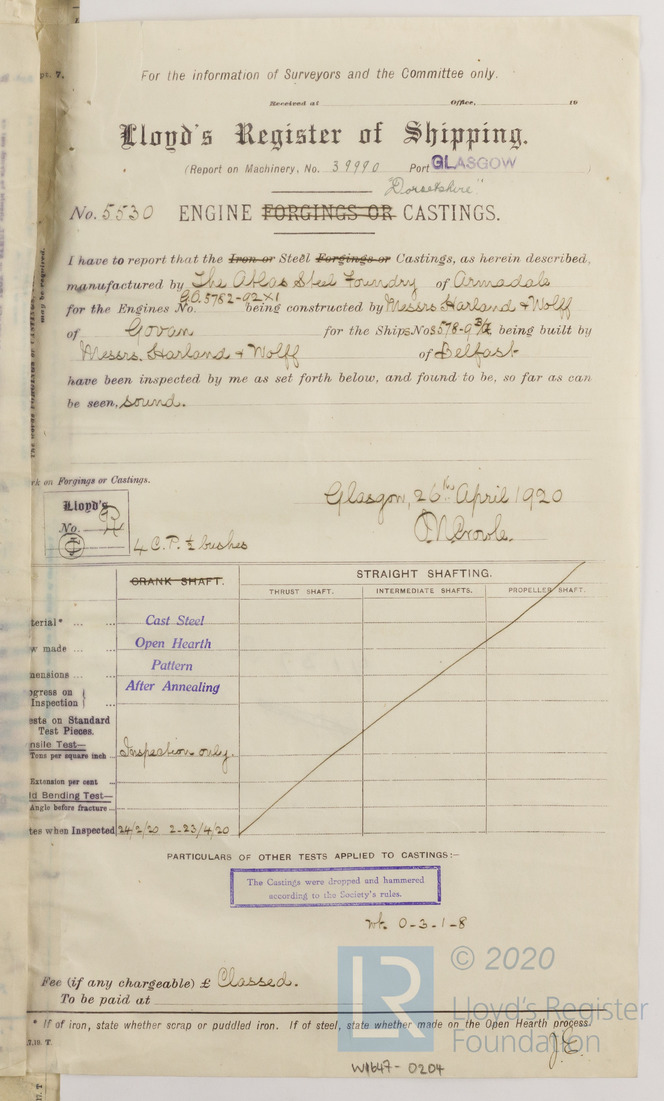 pt. 7.
For the information of Surveyors and the Committee only.
Received at Office, 19
Lloyd's Register of Shipping.
(Report on Machinery, No. 39990 Port GLASGOW )
"Dorsetshire"
No. 5530 ENGINE FORGINGS OR CASTINGS.
I have to report that the Iron or Steel Forgings or Castings, as herein described,
manufactured by The Atlas Steel Foundry of Armadale
G.O. 5782-92X1
for the Engines No. being constructed by Messrs Harland & Wolff
of Govan for the Ships Nos 578-9 being built by
Messrs. Harland & Wolff of Belfast
have been inspected by me as set forth below, and found to be, so far as can
be seen, sound.
may be required.
rk on Forgings or Castings.
Lloyd's
No.
4 C.P. ½ bushes
Glasgow, 26th April 1920
CRANK SHAFT.
STRAIGHT SHAFTING.
THRUST SHAFT. INTERMEDIATE SHAFTS. PROPELLER SHAFT.
terial* ... ... Cast Steel
w made ... ... Open Hearth
mensions ... ... Pattern
ogress on
Inspection ... After Annealing
ests on Standard
Test Pieces.
nsile Test—
Tons per square inch ... Inspection only.
Extension per cent ...
ld Bending Test—
Angle before fracture ...
tes when Inspected 24/2/20 2-23/4/20
PARTICULARS OF OTHER TESTS APPLIED TO CASTINGS:—
The Castings were dropped and hammered
according to the Society's rules.
wt. 0-3-1-8
Fee (if any chargeable) £ Classed.
To be paid at
* If of iron, state whether scrap or puddled iron. If of steel, state whether made on the Open Hearth process.
7,19. T.
J.E.
W1647-0204
LR
© 2020
Lloyd's Register
Foundation